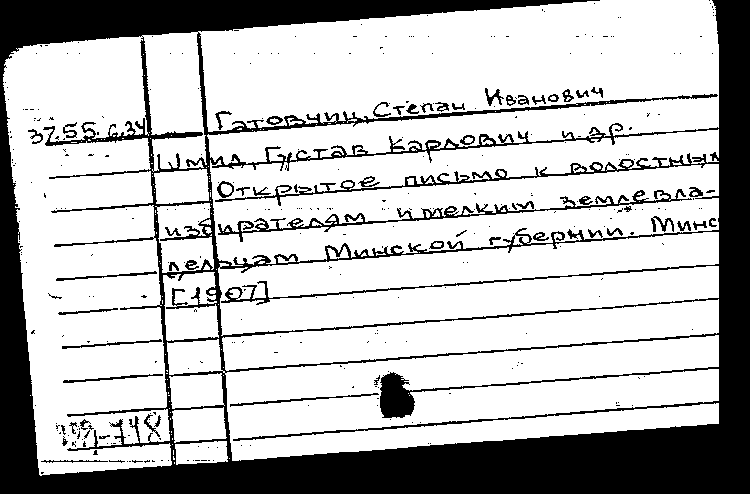 37.55.6.34 Гатовчиц, Степан Иванович
Шмид, Густав Карлович и др.
Открытое письмо к волостным
избирателям и мелким землевла-
дельцам Минской губернии. Минс
[1907]
-748